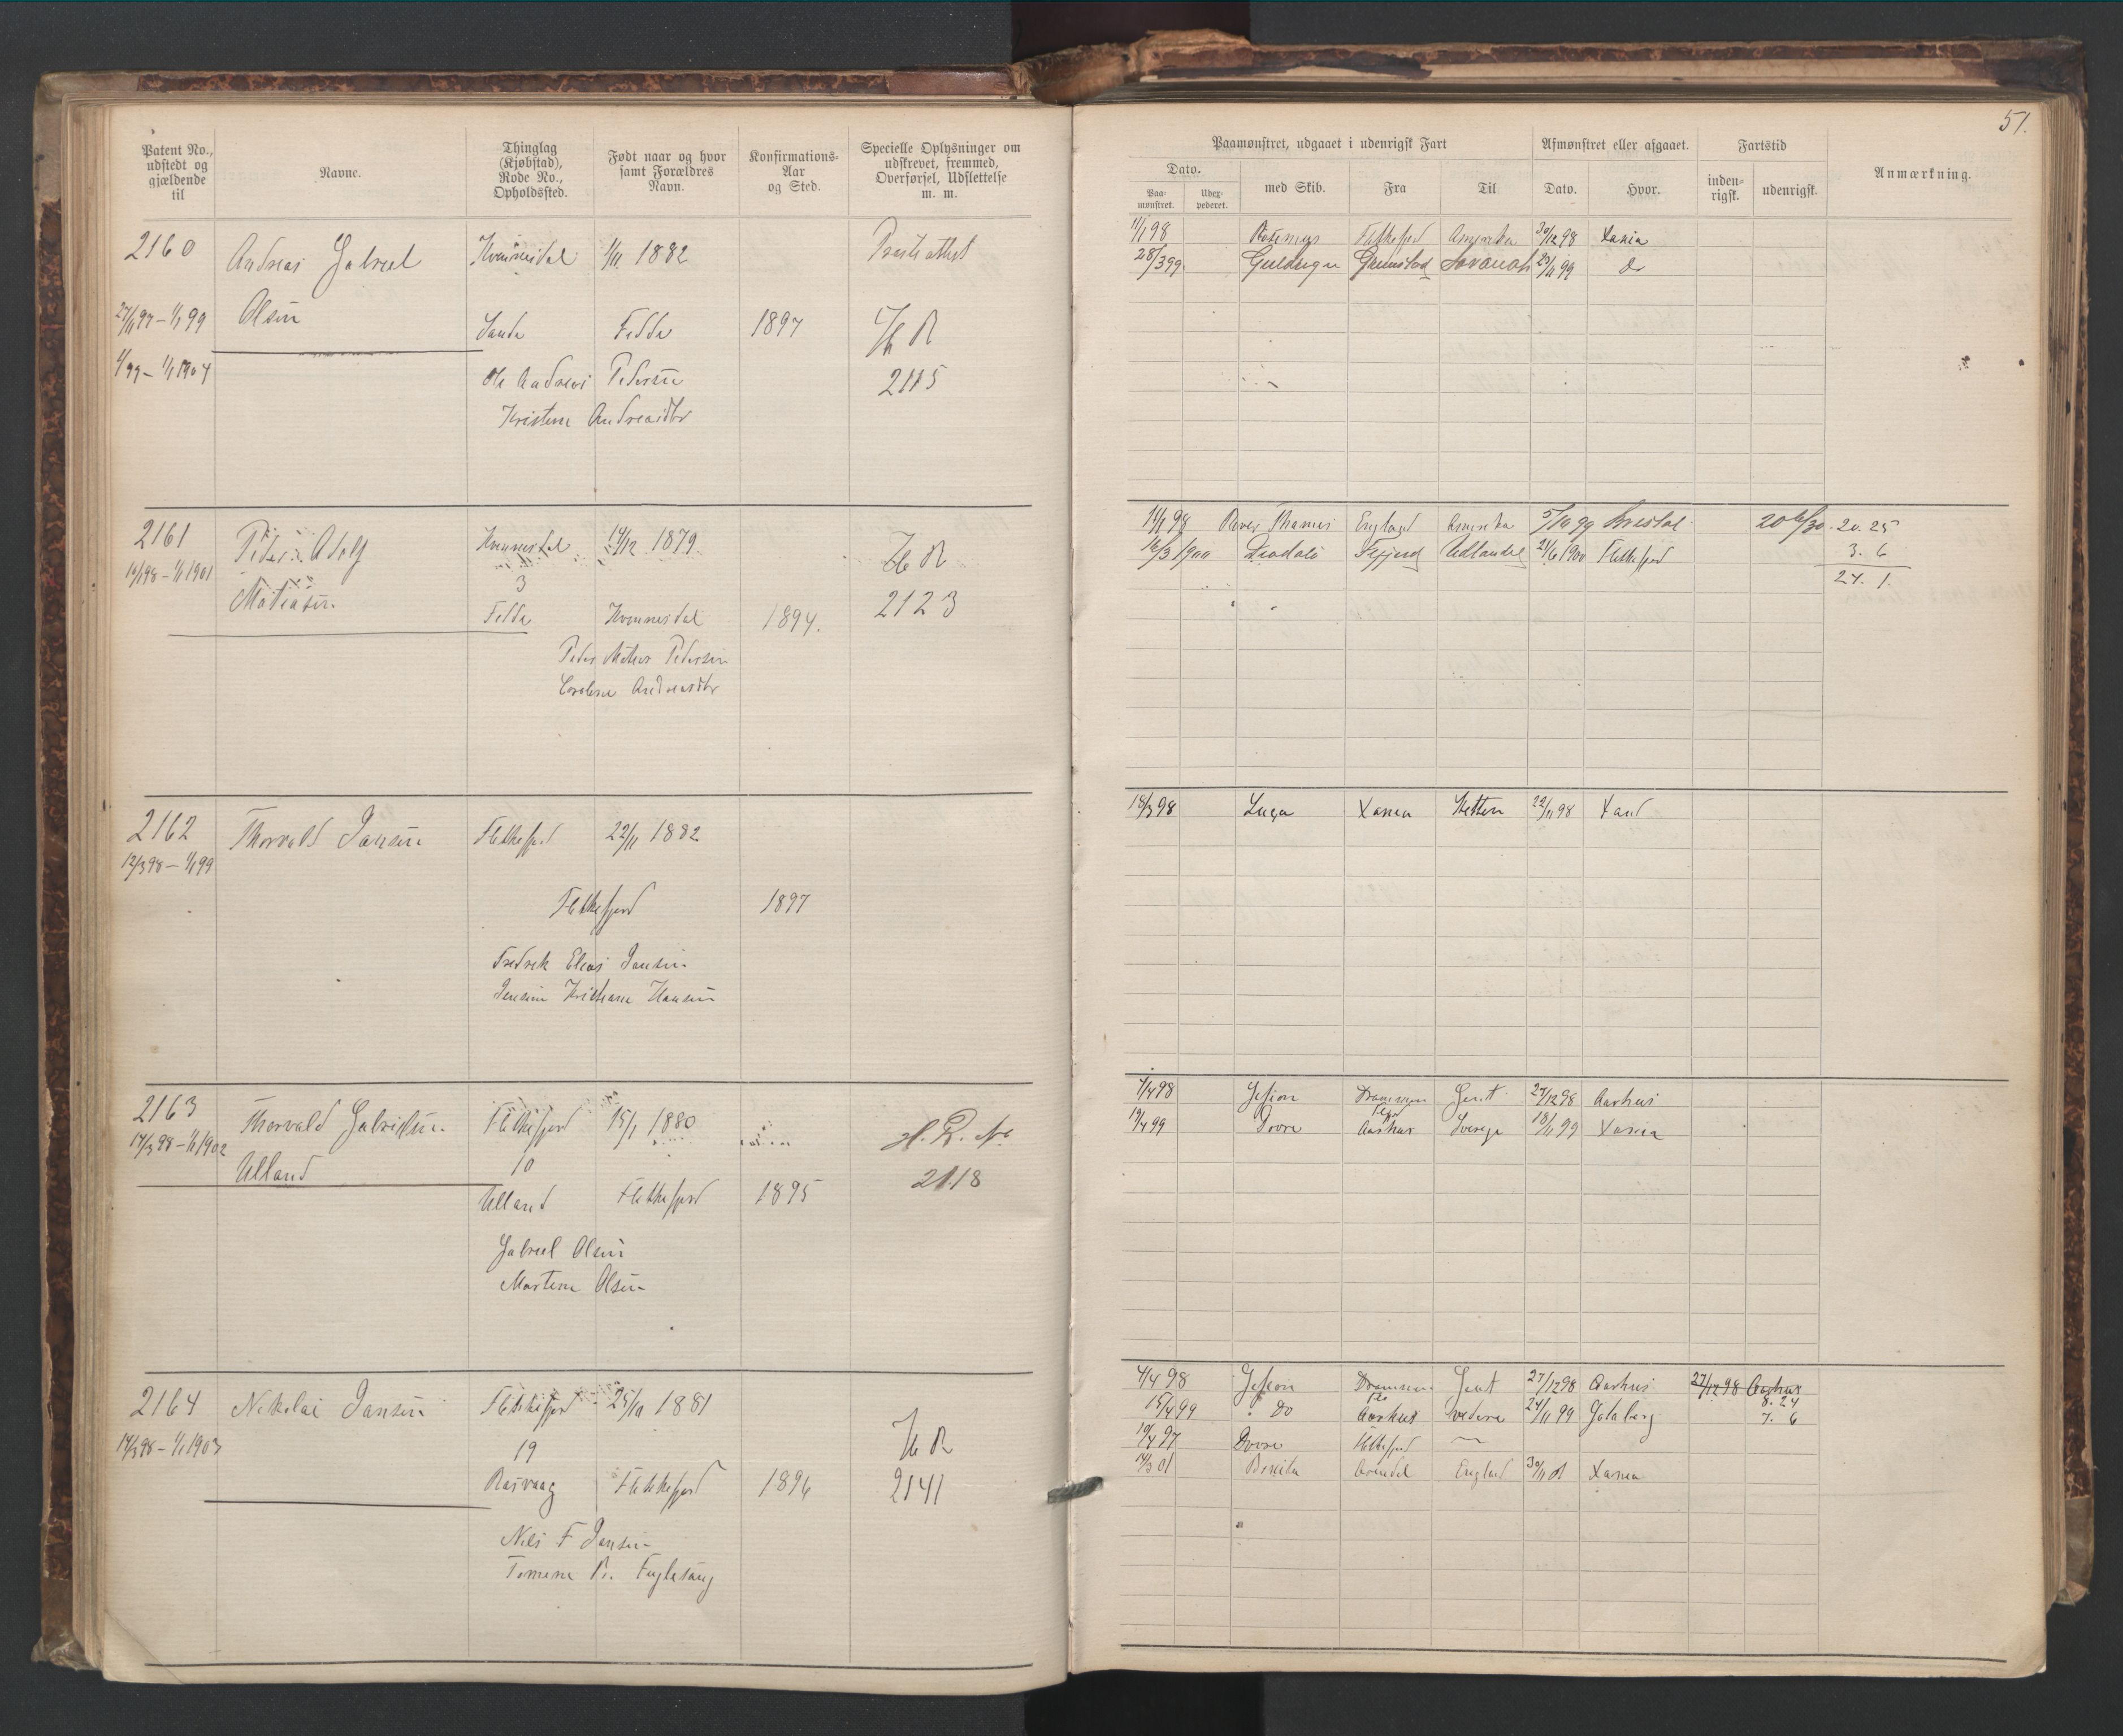 51.
Patent No., udstedt og gjældende til
Navne.
Thinglag (Kjøbstad), Rode No., Opholdssted.
Født naar og hvor samt Forældres Navn.
Konfirmations-Aar og Sted.
Specielle Oplysninger om udskrevet, fremmed, Overførsel, Udslettelse m. m.
Paamønstret, udgaaet i udenrigsk Fart
Afmønstret eller afgaaet.
Fartstid
Anmærkning.
Dato.
Paa-mønstret.
med Skib.
Fra
Til
Dato.
Hvor.
inden-rigsk.
udenrigsk.
2160
Andreas Gabriel
Olsen
27/11 97 – 1/1 99
1/1 1904
Kvinnesdal
1/11 1882
Sande
Fedde
1897
Ole Andreas Pedersen
Kristene Andreasdtr
H R
2115
11/1 98
Flekkefjord
Amerika
30/12 98
Xania
28/3 99
Grimstad
Savanah
23/11 99
do
2161
Peder Adolf
Matiasen
1/1 1901
Kvinnesdal
14/12 1879
3
Fedde
Kvinnesdal
1894.
Peder Mathias Pedersen
Andreasdtr
H R
2123
11/1 98
Rover Thames
England
Amerika
5/10 99
Bristol
20. 25
3. 6
24. 1.
16/3 1900
Udlandet
21/6 1900
Flekkefjord
2162
Thorvald Jansen
12/3 98 – 1/1 99
Flekkefjord
22/11 1882
Flekkefjord
1897
Fredrik Elias Jansen
Jensine Kristiane Hansen
18/3 98
Xania
Stettin
22/11 98
Xand
2163
Thorvald Gabrielsen
Ulland
14/3 98 – 1/1 1902
Flekkefjord
15/1 1880
10
Ulland
Flekkefjord
1895
Gabriel Olsen
Martine Olsen
H. R. No
2118
4/4 98
Gefion
Drammen
Gent
27/12 98
Aarhus
19/4 99
Dovre
Aarhus
Sverige
18/11 99
Xania
2164
Nikolai Jansen
14/3 98 – 1/1 1903
Flekkefjord
25/10 1881
19
Rasvaag
Flekkefjord
1896
Nils F Jansen
Tomine R. Fuglesang
H R
2141
4/4 98
Gefion
Drammen
Gent
27/12 98
Aarhus
27/12 98 Aarhus
8. 24
15/4 99
Do
Aarhus
24/11 99
Gøteborg
7. 6
19/4 97
Dovre
Flekkefjord
14/3 01
Benita
Arendal
England
30/11 01
Xania